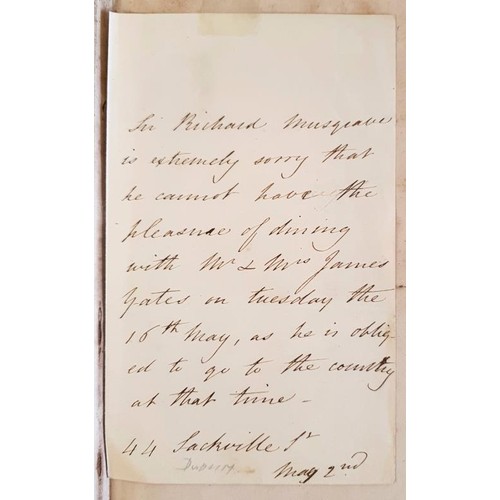 Sir Richard Musgrave
is extremely sorry that
he cannot have the
pleasure of dining
with Mr & Mrs James
Yates on tuesday the
16th May, as he is oblig-
ed to go to the country
at that time -
44 Sackville St
May 2nd